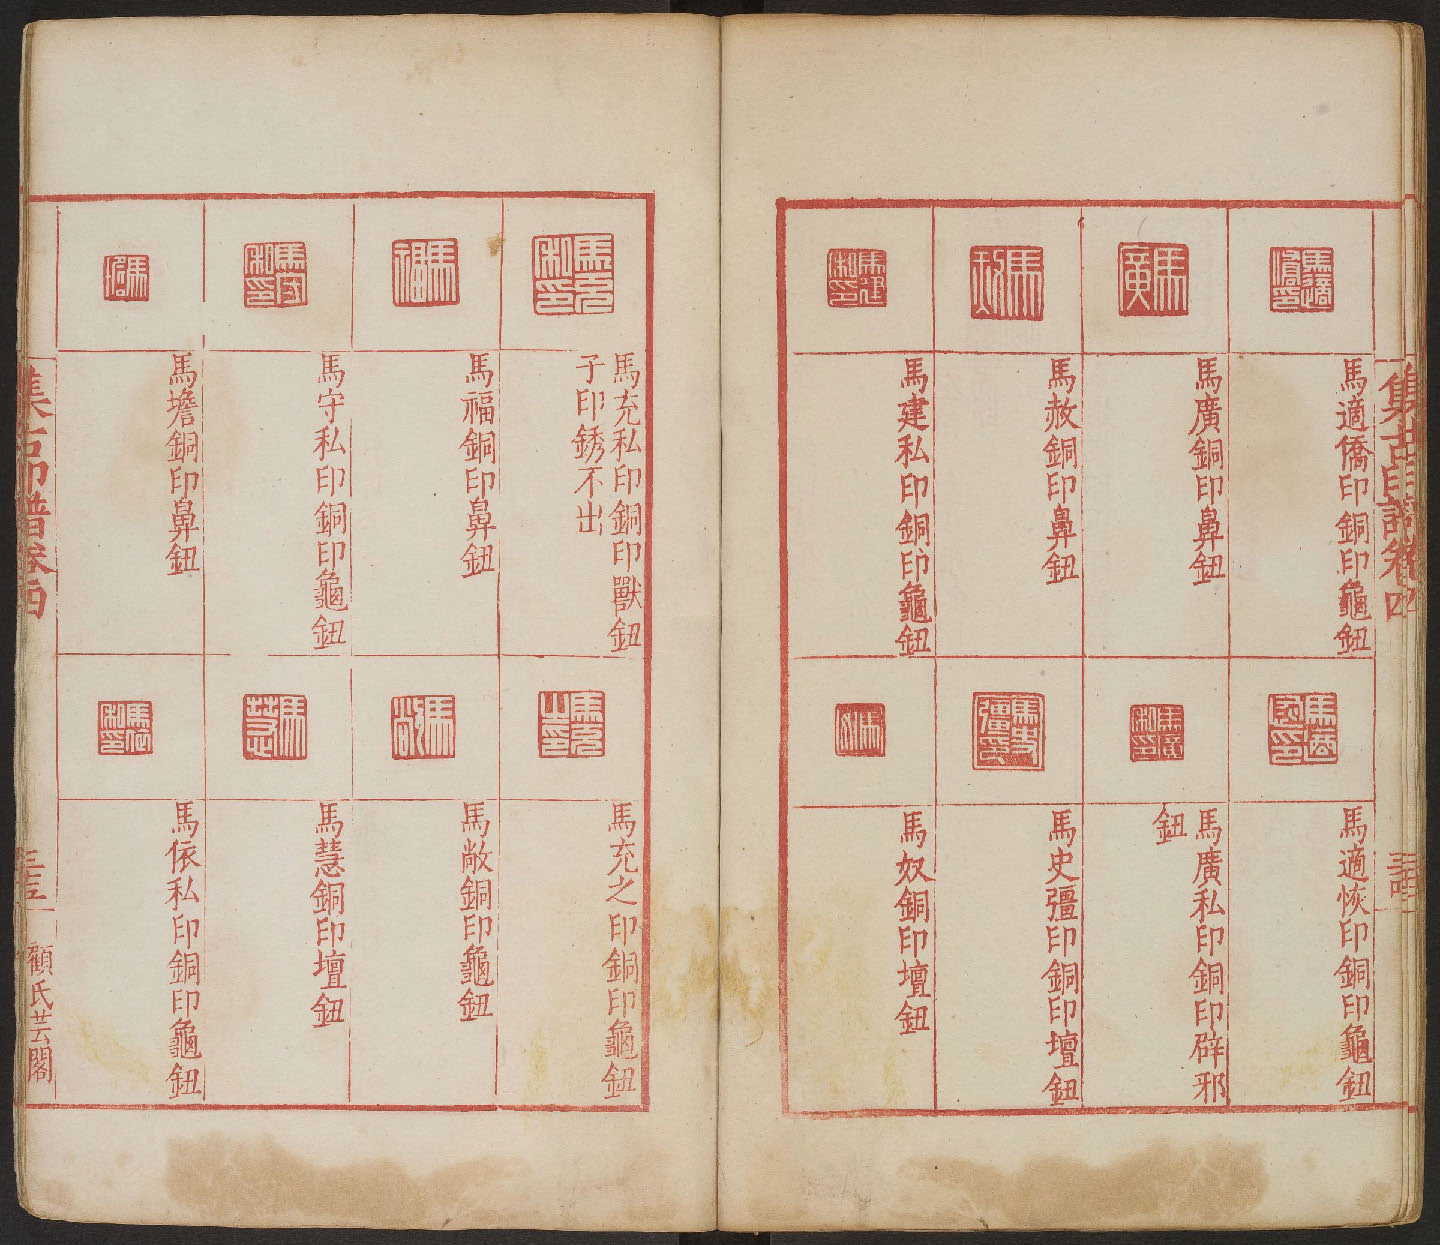 集古印譜卷四
馬適僑印銅印龜鈕
馬廣銅印鼻鈕
馬赦銅印鼻鈕
馬建私印銅印龜鈕
馬適恢印銅印龜鈕
馬廣私印銅印辟邪
鈕
馬史彊印銅印壇鈕
馬奴銅印壇鈕
馬充私印銅印獸鈕
子印銹不出
馬福銅印鼻鈕
馬守私印銅印龜鈕
馬㙴銅印鼻鈕
馬充之印銅印龜鈕
馬敞銅印龜鈕
馬慧銅印壇鈕
馬依私印銅印龜鈕
集古印譜卷四
三五
顧氏芸閣